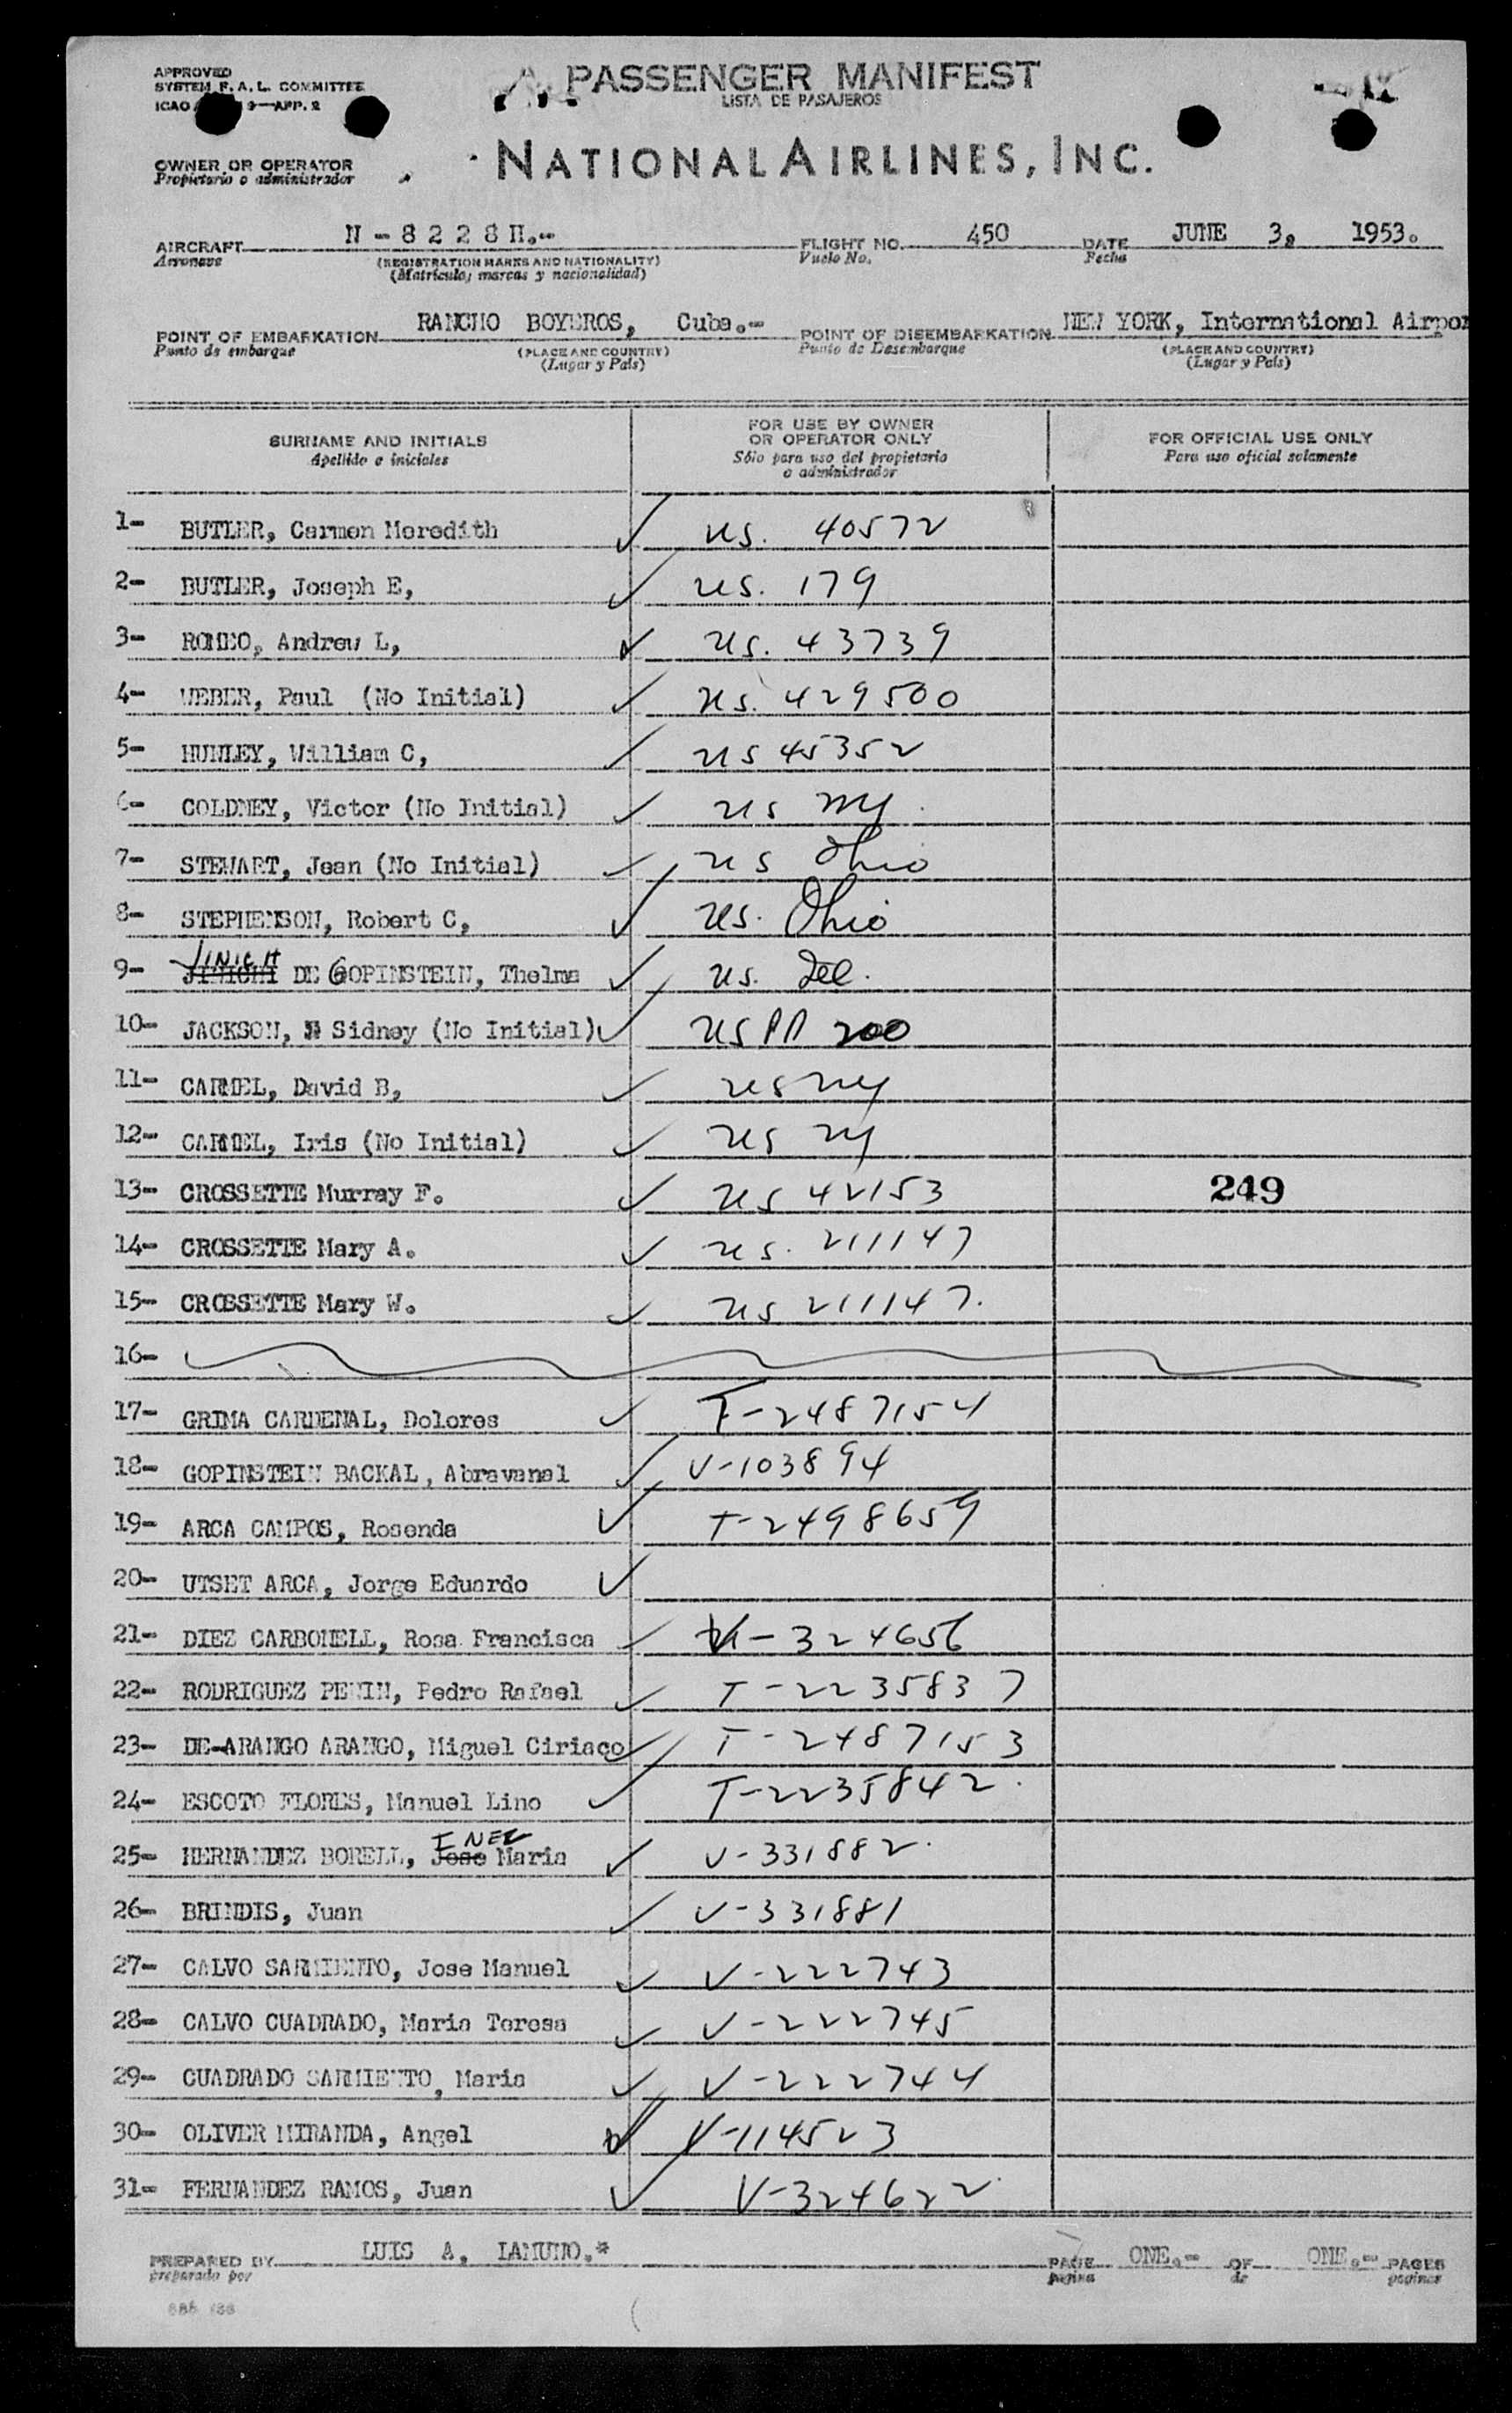 APPROVED
SYSTEM F. A. L. COMMITTEE
ICAO 9—APP. 2
PASSENGER MANIFEST
LISTA DE PASAJEROS
OWNER OR OPERATOR
Propietario o administrador
NATIONAL AIRLINES, INC.
AIRCRAFT N - 8 2 2 8 H.- FLIGHT NO. 450 DATE JUNE 3, 1953.
Aeronave (REGISTRATION MARKS AND NATIONALITY) Vuelo No. Fecha
(Matrícula, marcas y nacionalidad)
POINT OF EMBARKATION RANCHO BOYEROS, Cuba.- POINT OF DISEMBARKATION NEW YORK, International Airpor
Punto de embarque (PLACE AND COUNTRY) Punto de Desembarque (PLACE AND COUNTRY)
(Lugar y País) (Lugar y País)
SURNAME AND INITIALS
Apellido e iniciales
FOR USE BY OWNER
OR OPERATOR ONLY
Sólo para uso del propietario
o administrador
FOR OFFICIAL USE ONLY
Para uso oficial solamente
1- BUTLER, Carmen Meredith US. 40572
2- BUTLER, Joseph E, US. 179
3- ROMEO, Andrew L, US. 43739
4- WEBER, Paul (No Initial) US. 429500
5- HUNLEY, William C, US 45352
6- COLDNEY, Victor (No Initial) US NY.
7- STEWART, Jean (No Initial) US Ohio
8- STEPHENSON, Robert C, US. Ohio
9- JINICH DE GOPINSTEIN, Thelma US. Del.
10- JACKSON, Sidney (No Initial) US PP 200
11- CARMEL, David B, US NY
12- CARMEL, Iris (No Initial) US NY
13- CROSSETTE Murray F. US 42153 249
14- CROSSETTE Mary A. US. 211147
15- CROSSETTE Mary W. US 211147.
16-
17- GRIMA CARDENAL, Dolores T-2487154
18- GOPINSTEIN BACKAL, Abravanel V-103894
19- ARCA CAMPOS, Rosenda T-2498659
20- UTSET ARCA, Jorge Eduardo
21- DIEZ CARBONELL, Rosa Francisca V-324656
22- RODRIGUEZ PENIN, Pedro Rafael T-2235837
23- DE-ARANGO ARANGO, Miguel Ciriaco T-2487153
24- ESCOTO FLORES, Manuel Lino T-2235842.
25- HERNANDEZ BORELL, Jose INEZ Maria V-331882.
26- BRINDIS, Juan V-331881
27- CALVO SARMIENTO, Jose Manuel V-222743
28- CALVO CUADRADO, Maria Teresa V-222745
29- CUADRADO SARMIENTO, Maria V-222744
30- OLIVER MIRANDA, Angel V-114523
31- FERNANDEZ RAMOS, Juan V-324622
PREPARED BY LUIS A. PAGE ONE.- OF ONE.- PAGES
preparado por página de páginas